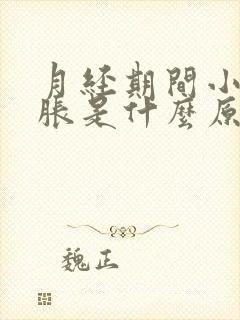 月经期間小
脹是什麼原
魏正